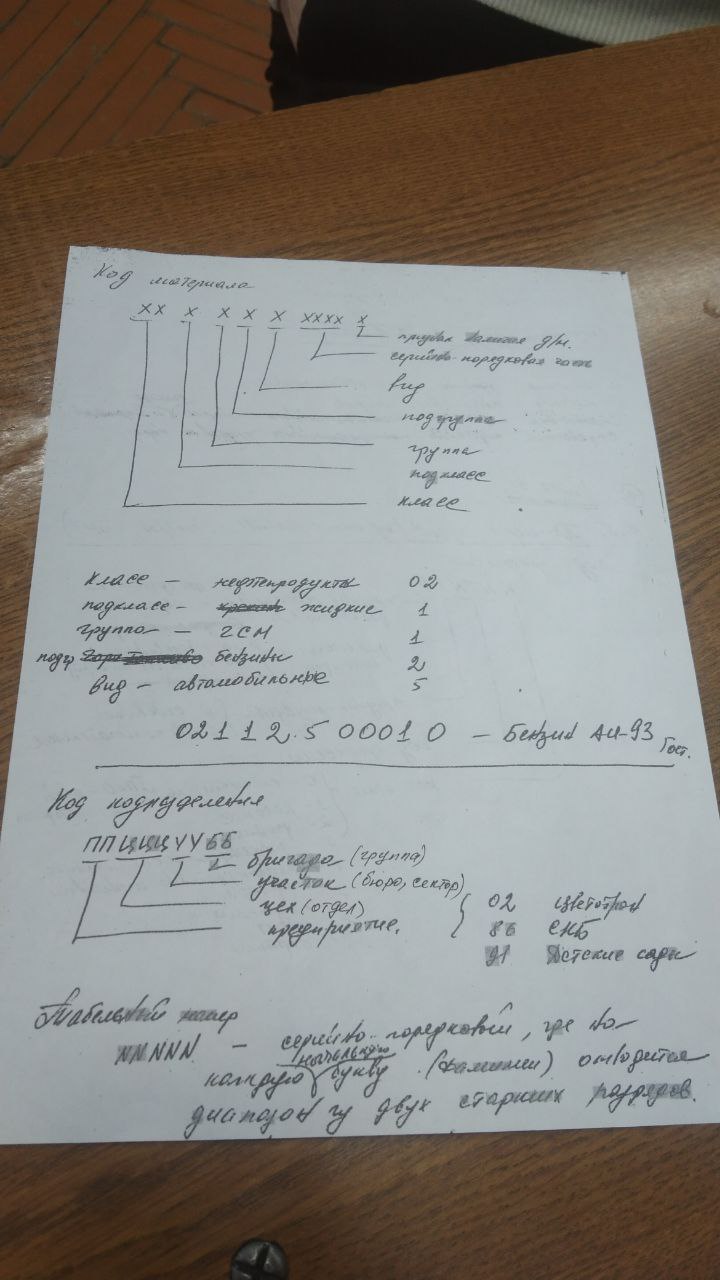 Код материала
ХХ Х Х Х Х ХХХХ Х
признак
серийно-порядковая часть
вид
подгруппа
группа
подкласс
класс
класс — нефтепродукты 02
подкласс — жидкие 1
группа — ГСМ 1
подгр бензины 2
вид — автомобильные 5
02112.500010 — Бензин АИ-93 Гост.
Код подразделения
ППЦЦЦУУББ
бригада (группа)
участок (бюро, сектор)
цех (отдел)
предприятие.
02 Цветотрон
86 СКБ
91 Детские сады
Табельный номер
NNNNN — серийно-порядковый, где на
каждую начальную букву (фамилии) отводится
диапазон из двух старших разрядов.